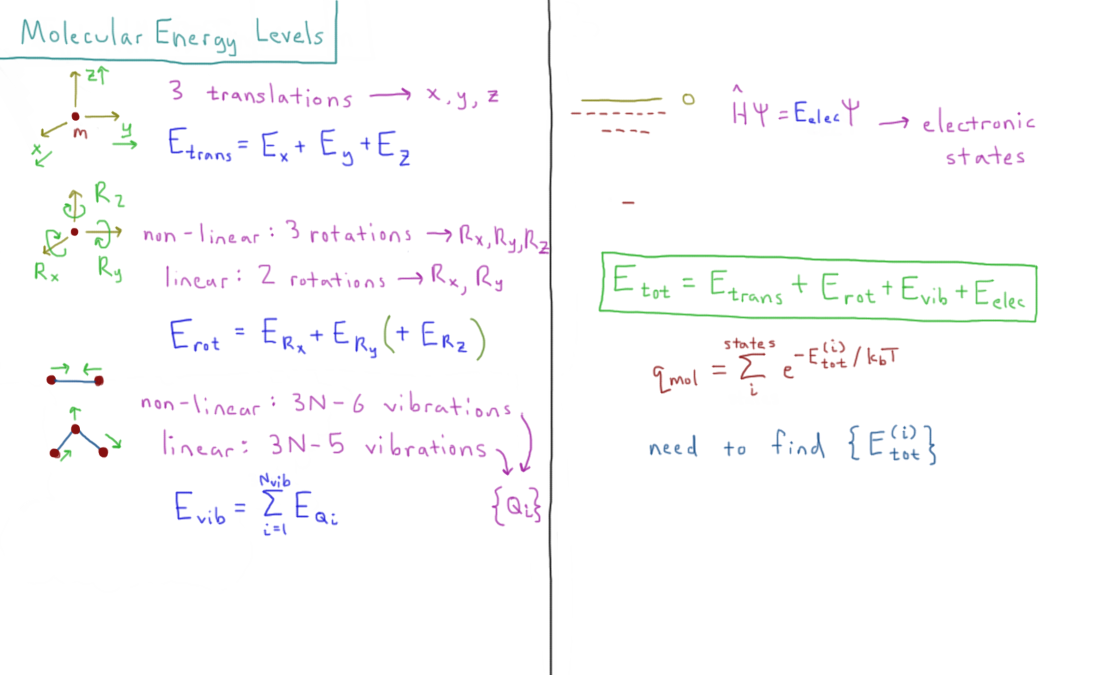 Molecular Energy Levels
z↑
m
y
x
3 translations → x, y, z
E_trans = E_x + E_y + E_z
R_z
R_x
R_y
non-linear: 3 rotations → R_x, R_y, R_z
linear: 2 rotations → R_x, R_y
E_rot = E_{R_x} + E_{R_y} (+ E_{R_z})
non-linear: 3N-6 vibrations
linear: 3N-5 vibrations
{Q_i}
E_vib = Σ_{i=1}^{N_vib} E_{Q_i}
0
ĤΨ = E_elec Ψ → electronic
states
E_tot = E_trans + E_rot + E_vib + E_elec
q_mol = Σ_i^{states} e^{-E_tot^{(i)}/k_bT}
need to find {E_tot^{(i)}}